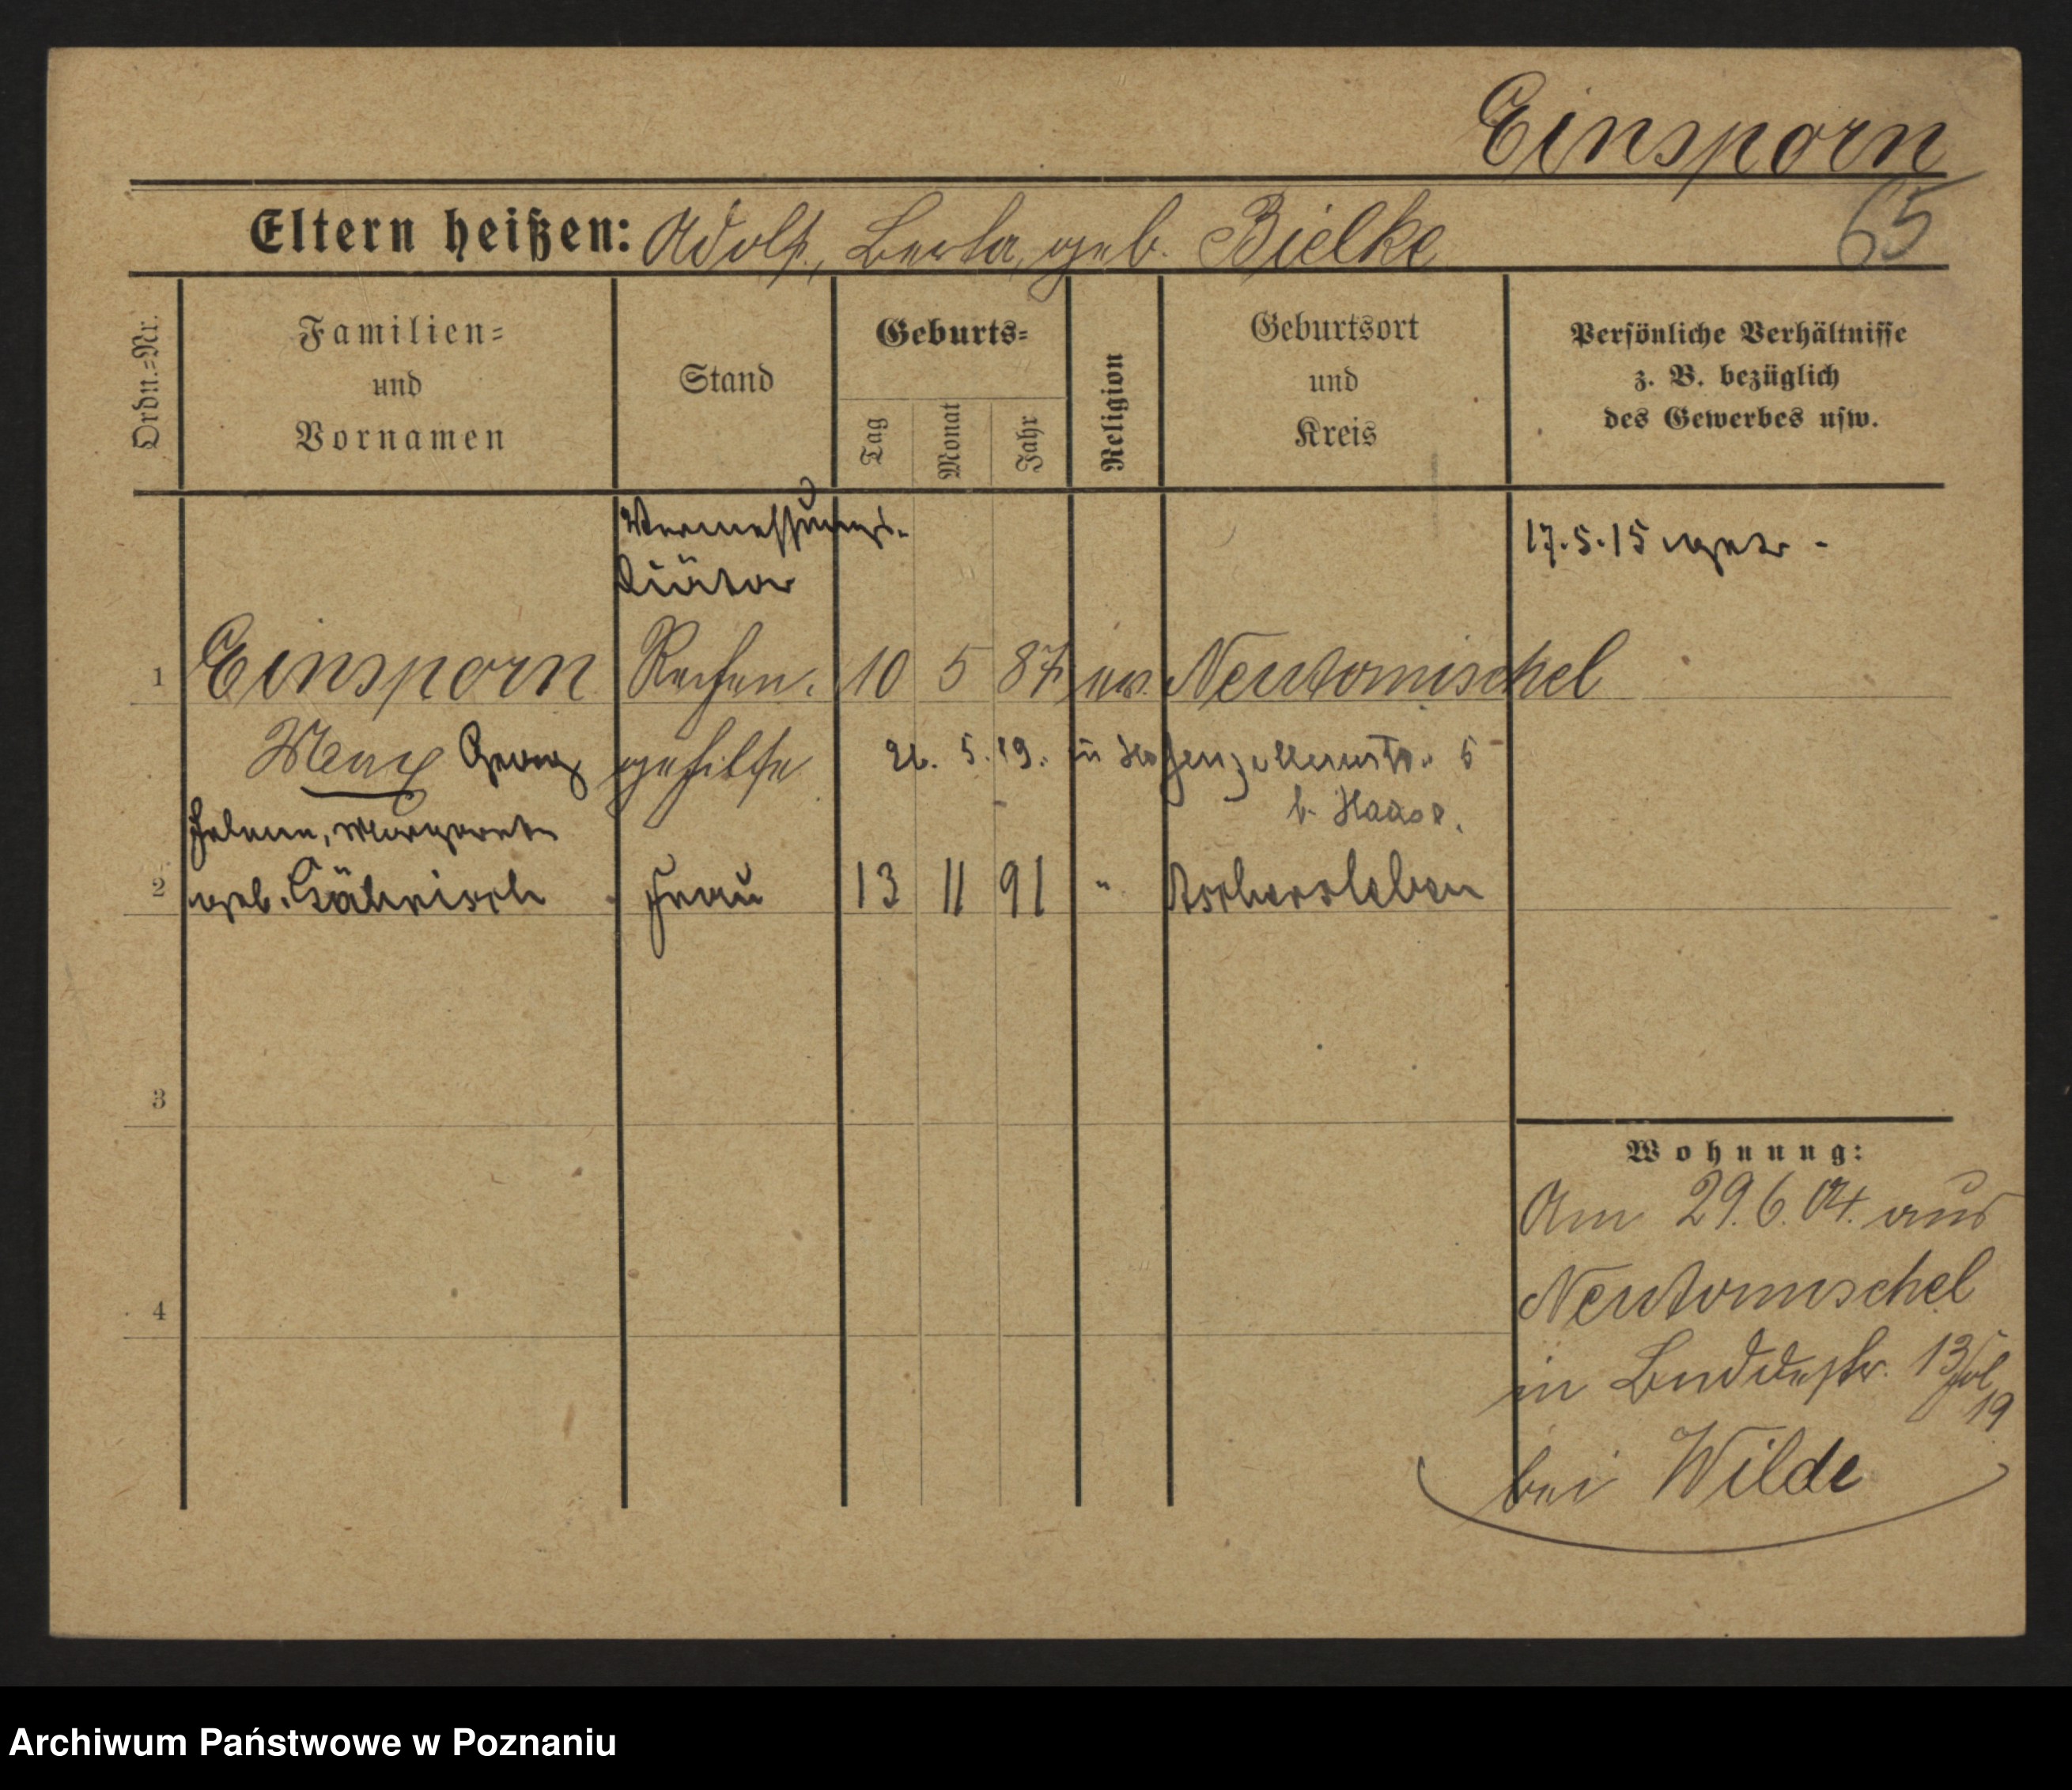 Einsporn
Eltern heißen: Adolf, Berta, geb. Bielke
65
Ordn.=Nr.
Familien=
und
Vornamen
Stand
Geburts=
Tag
Monat
Jahr
Religion
Geburtsort
und
Kreis
Persönliche Verhältnisse
z. B. bezüglich
des Gewerbes usw.
Vermessungs-
Diätar
17.5.15
1 Einsporn Rechen. 10 5 87 ev. Neutomischel
Max Georg gehilfe
5. 19. in Hohenzollernstr. 5
b. Haase.
Helene, Margarete
2 geb. Frau 13 11 91 " Aschersleben
3
4
Wohnung:
Am 29.6.04. aus
Neutomischel
in Buddestr. 13
19
bei Wilde
Archiwum Państwowe w Poznaniu